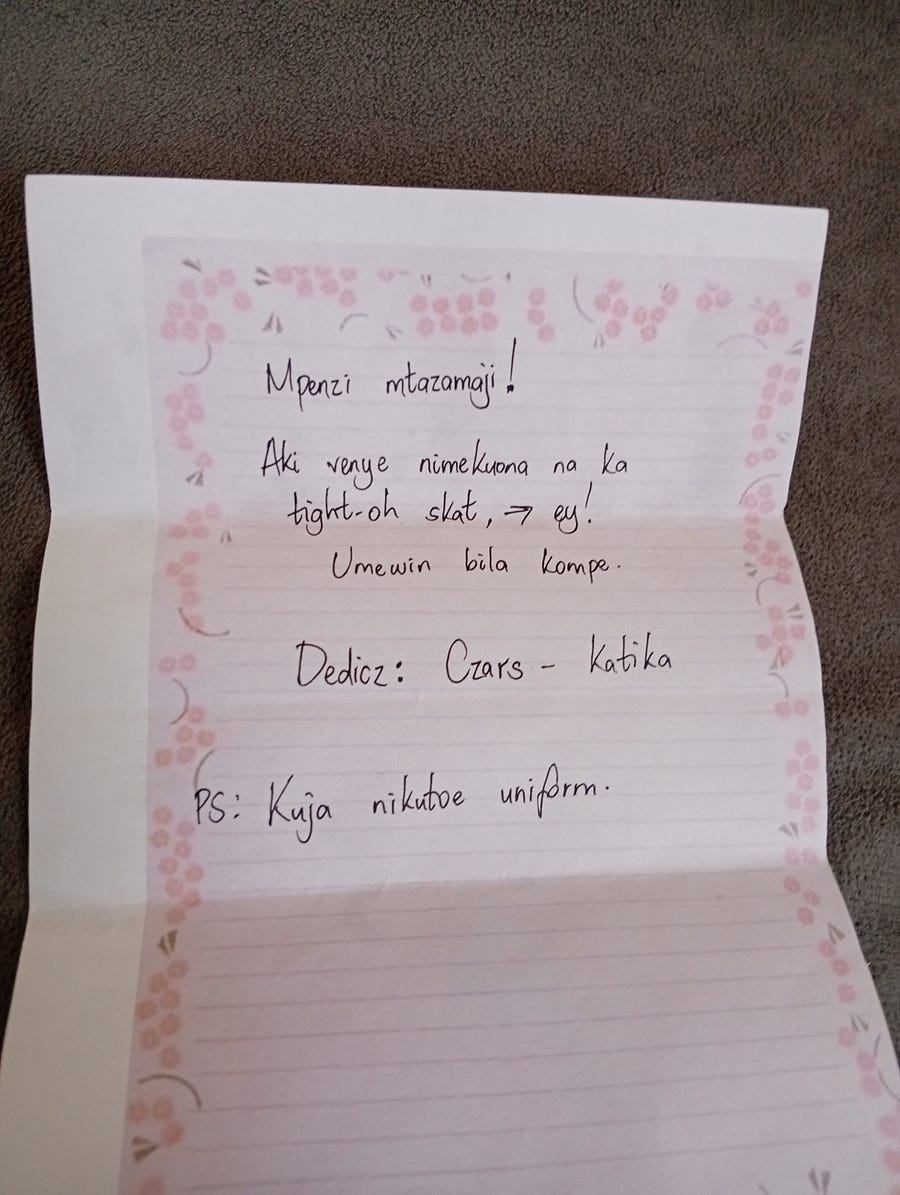 Mpenzi mtazamaji!
Aki venye nimekuona na ka
tight-oh skat, → ey!
Umewin bila kompe.
Dedicz: Czars - Katika
PS: Kuja nikutoe uniform.